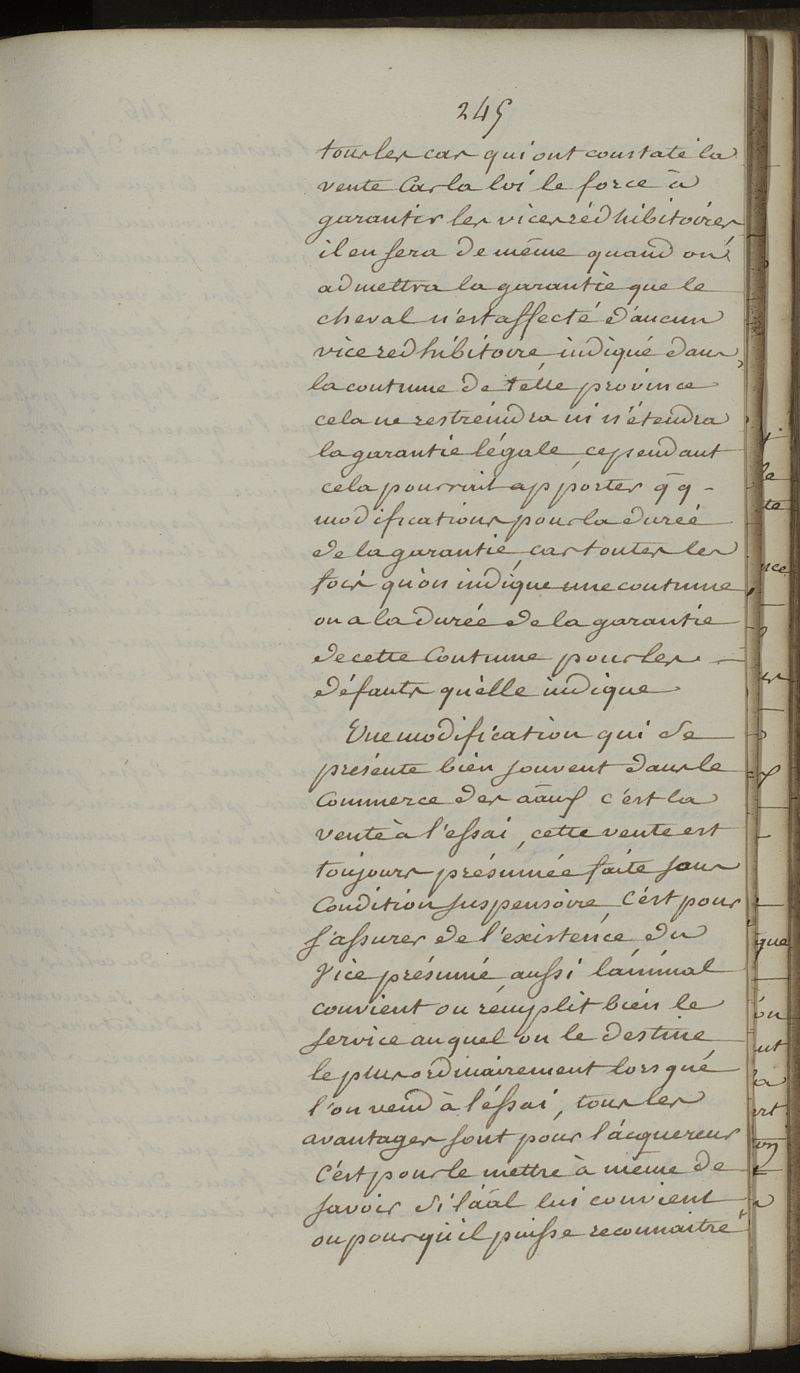 245
tous les cas qui ont constaté la
vente Car la loi le force à
garantir les vices rédhibitoires
il en sera de même quand on
admettra la garantie que le
cheval n'est affecté d'aucun
vice redhibitoire indiqué dans
la coutume de telle province
cela ne restreindra ni n'étendra
la garantie légale, cependant
cela pourrait apporter qq
modifications pour la durée
de la garantie, car toutes les
fois qu'on indique une coutume
on a la durée de la garantie
de cette Coutume pour les
défauts qu'elle indique
Une modification qui se
présente bien souvent dans le
Commerce des aāux c'est la
vente à l'essai, cette vente est
toujours présumée faite sous
Condition suspensoire, C'est pour
s'assurer de l'existence du
Vice présumé aussi l'animal
convient ou remplit bien le
service auquel on le destine
le plus ordinairement lorsque
l'on vend à l'essai, tous les
avantages sont pour l'acquereur
C'est pour le mettre à même de
savoir si l'aāl lui convient
ou pour qu'il puisse reconnaitre